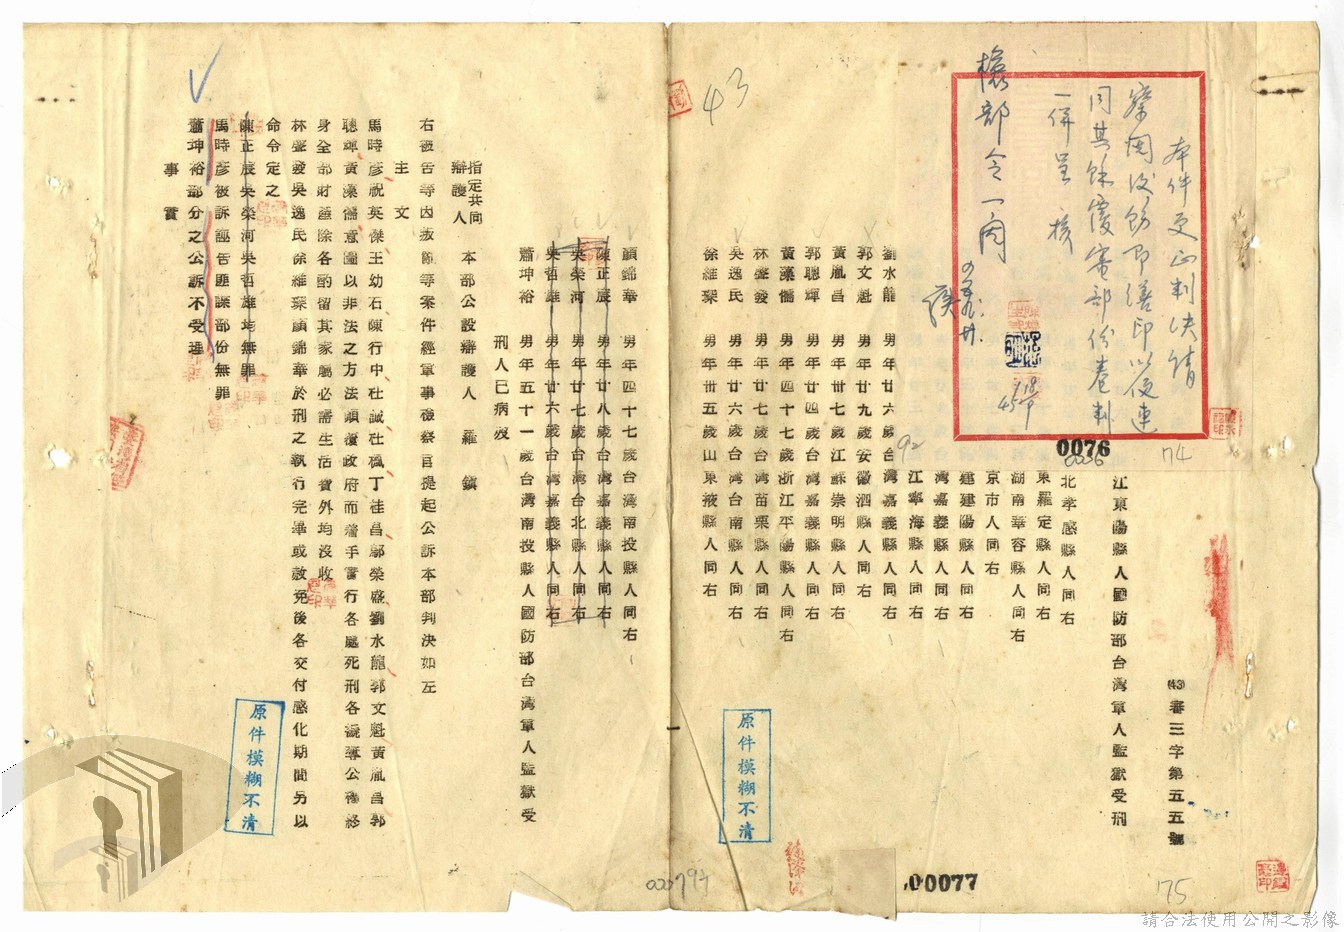 本件更正判決請
察閱後飭即繕印以便連
同其餘覆審部份卷判
一併呈核
0076
74
⒀審三字第五五號
江東陽縣人國防部台灣軍人監獄受刑
北孝感縣人同右
東羅定縣人同右
湖南華容縣人同右
京市人同右
建建陽縣人同右
灣嘉義縣人同右
江寧海縣人同右
劉水龍 男年廿六歲台灣嘉義縣人同右
郭文魁 男年廿九歲安徽泗縣人同右
黃胤昌 男年卅七歲江蘇崇明縣人同右
郭聰輝 男年廿四歲台灣嘉義縣人同右
黃漢儒 男年四十七歲浙江平陽縣人同右
林聲發 男年廿七歲台灣苗栗縣人同右
吳逸民 男年廿六歲台灣台南縣人同右
徐維琛 男年卅五歲山東掖縣人同右
43
原件模糊不清
00077
75
顏錦華 男年四十七歲台灣南投縣人同右
陳正宸 男年廿八歲台灣嘉義縣人同右
吳榮河 男年廿七歲台灣台北縣人同右
吳哲雄 男年廿六歲台灣嘉義縣人同右
蕭坤裕 男年五十一歲台灣南投縣人國防部台灣軍人監獄受
刑人已病歿
指定共同
辯護人 本部公設辯護人 羅鎮
右被告等因叛亂等案件經軍事檢察官提起公訴本部判決如左
主文
馬時彥祝英傑王幼石陳行中杜誠杜楓丁桂昌鄒榮盛劉水龍郭文魁黃胤昌郭
聰輝黃漢儒意圖以非法之方法顛覆政府而着手實行各處死刑各褫奪公權終
身全部財產除各酌留其家屬必需生活費外均沒收
林聲發吳逸民徐維琛顏錦華於刑之執行完畢或赦免後各交付感化期間另以
命令定之
陳正宸吳榮河吳哲雄均無罪
馬時彥被訴誣告匪諜部份無罪
蕭坤裕部分之公訴不受理
事實
原件模糊不清
請合法使用公開之影像